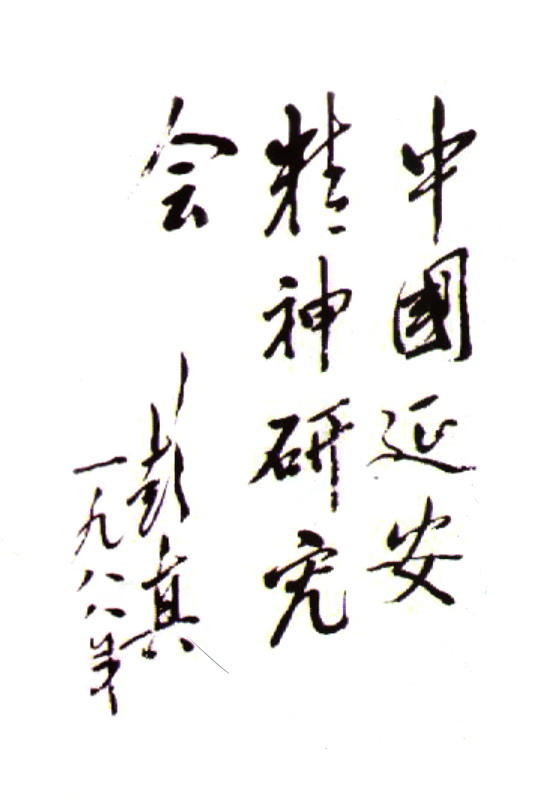 中國延安
精神研究
会
彭真
一九八八年